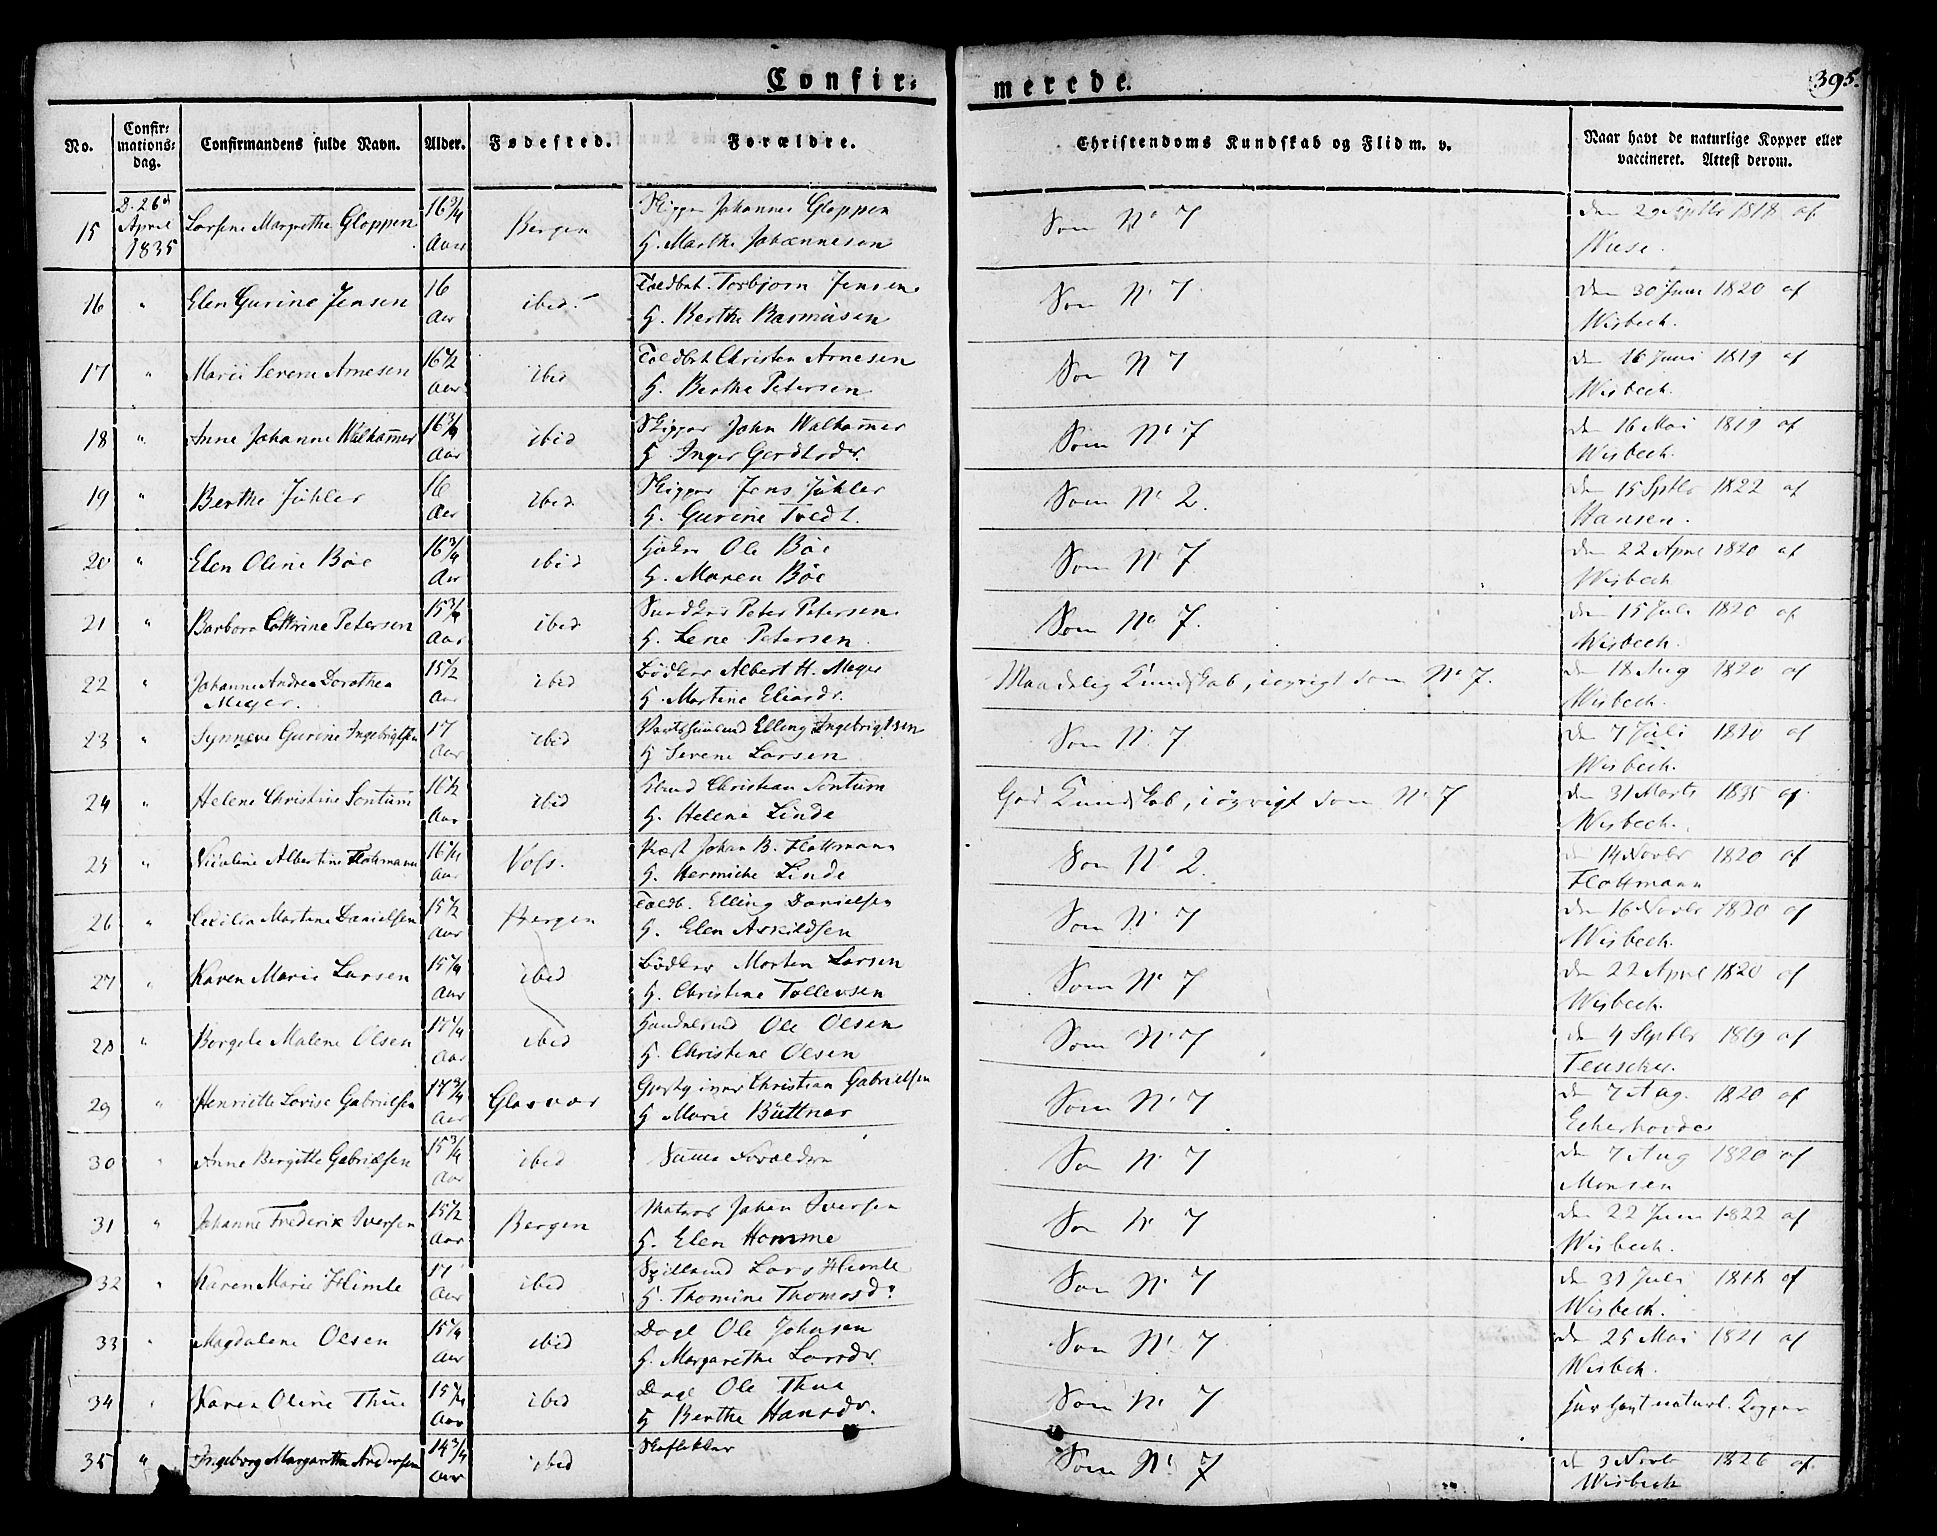 Confir-
merede.
395.
No.
Confir-
mations-
dag.
Confirmandens fulde Navn.
Alder.
Fødested.
Forældre.
Christendoms Kundskab og Flid m. v.
Naar havt de naturlige Kopper eller
vaccineret. Attest derom.
15 D. 26d April 1835 Larsine Margrethe Gloppen 16 3/4 Aar Bergen Skipper Johannes Gloppen
H. Marthe Johannesen
Som No 7 den 29 Septbr 1818 af
Wiese.
16 " Elen Gurine Jensen 16 Aar ibid. Toldbet. Torbjørn Jensen
H. Berthe Rasmusen
Som No 7. den 30 Juni 1820 af
Wisbech.
17 " Marie Serene Arnesen 16 1/2 Aar ibid Toldbet Christen Arnesen
H. Berthe Petersen
Som No 7 den 16 Juni 1819 af
Wisbech.
18 " Anne Johanne Walhammer 16 3/4 Aar ibid Skipper John Walhammer
H. Inger Gerdtsdr.
Som No 7 den 16 Mai 1819 af
Wisbech.
19 " Berthe Jühler 16 Aar ibid Skipper Jens Jühler
H. Gurine Toldt.
Som No 2. den 15 Septbr 1822 af
Hansen.
20 " Elen Oline Böe 16 3/4 Aar ibid Ole Böe
H. Maren Böe
Som No 7 den 22 April 1820 af
Wisbech
21 " Barbora Cathrine Petersen 15 3/4 Aar ibid Peter Petersen
H. Lene Petersen
Som No 7. den 15 Juli 1820 af
Wisbech.
22 " Johanne Andrea Dorothea
Meyer. 15 1/2 Aar ibid Bödker Albert H. Meyer
H. Martine Eliardr.
Maadelig Kundskab, iøvrigt som No 7. den 18 Aug 1820 af
Wisbech.
23 " Synneve Gurine Ingebrigtsen 17 Aar ibid Elling Ingebrigtsen
H Serene Larsen
Som No 7 den 7 Juli 1820 af
Wisbech.
24 " Helene Christine Sontum 16 1/2 Aar ibid Christian Sontum
H. Helene Linde
God Kundskab, iøvrigt som No 7 den 31 Marts 1835 af
Wisbech.
25 " Nicoline Albertine Flottmann 16 1/4 Aar Voss. Præst Johan B. Flottmann
H. Hermiche Linde
Som No 2. den 14 Novbr 1820 af
Flottmann
26 " Cecilia Martine Danielsen 15 1/2 Aar Bergen Toldb. Elling Danielsen
H. Elen Askildsen
Som No 7 den 16 Novbr 1820 af
Wisbech.
27 " Karen Marie Larsen 15 1/4 Aar ibid Bödker Morten Larsen
H. Christine Tollevsen
Som No 7 den 22 April 1820 af
Wisbech.
28 " Bergele Malene Olsen 17 1/4 Aar ibid Handelsmd Ole Olsen
H. Christine Olsen
Som No 7 den 4 Septbr 1819 af
Teuscher.
29 " Henriette Lovise Gabrielsen 17 3/4 Aar Glasvær Gjestgiver Christian Gabrielsen
H Marie Büttner
Som No 7 den 7 Aug. 1820 af
30 " Anne Bergitte Gabrielsen 15 3/4 Aar ibid Samme Forældre
Som No 7 den 7 Aug 1820 af
Monsen
31 " Johanne Frederik Iversen 15 1/2 Aar Bergen Matros Johan Iversen
H. Elen Homme
Som No 7 den 22 Juni 1822 af
Wisbech.
32 " Karen Marie Himle 17 Aar ibid Spillemd Lars Himle
H. Thomine Thomasdr
Som No 7 den 31 Juli 1818 af
Wisbech.
33 " Magdalene Olsen 15 1/4 Aar ibid Dagl Ole Johnsen
H. Margarethe Larsdr.
Som No 7 den 25 Mai 1821 af
Wisbech.
34 " Karen Oline Thue 15 1/4 Aar ibid Dagl Ole Thue
H Berthe Hansdr.
Som No 7 har havt naturl. Kopper
35 " Ingeborg Margarethe Andersen 14 3/4 Aar ibid Skoflikker
Som No 7 den 3 Novbr 1826 af
Wisbech